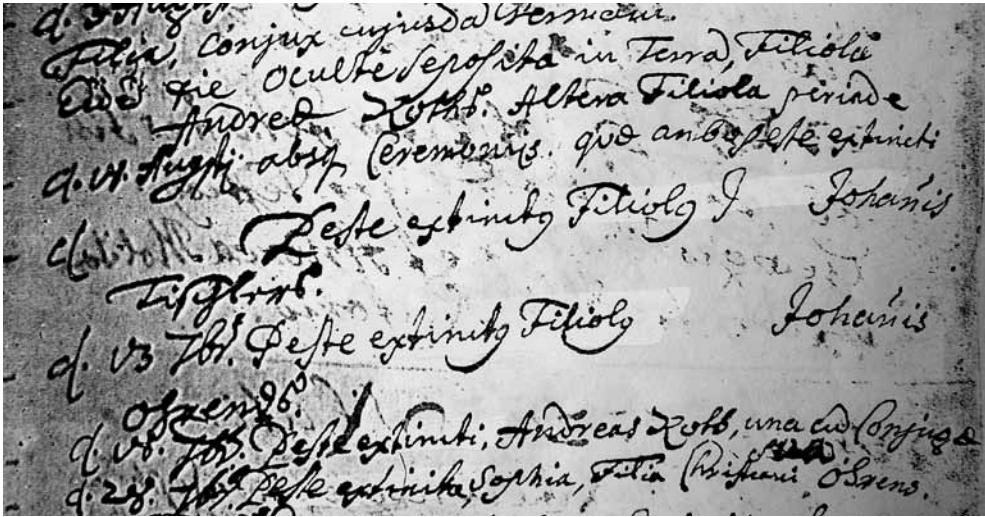 d. 3 Augustj
Filia, Conjux cujusda Germani.
Ejus pie Oculte seposita in Terra, Filiola
Andreæ Rothß. Altera Filiola periade
d. 14. Augstj absq Ceremonijs. quæ ambo peste extincti
d. Peste extinctq Filiolq J Johanis
Tischlerß.
d. 13 7br. Peste extinctq Filiolq Johanis
Ohrendß.
d. 18. 7br. Peste extincti, Andreas Roth, una cu Conjuge
sua
d. 28. 7br. Peste extincta, Sophia, Filia Christiani Ohrens.